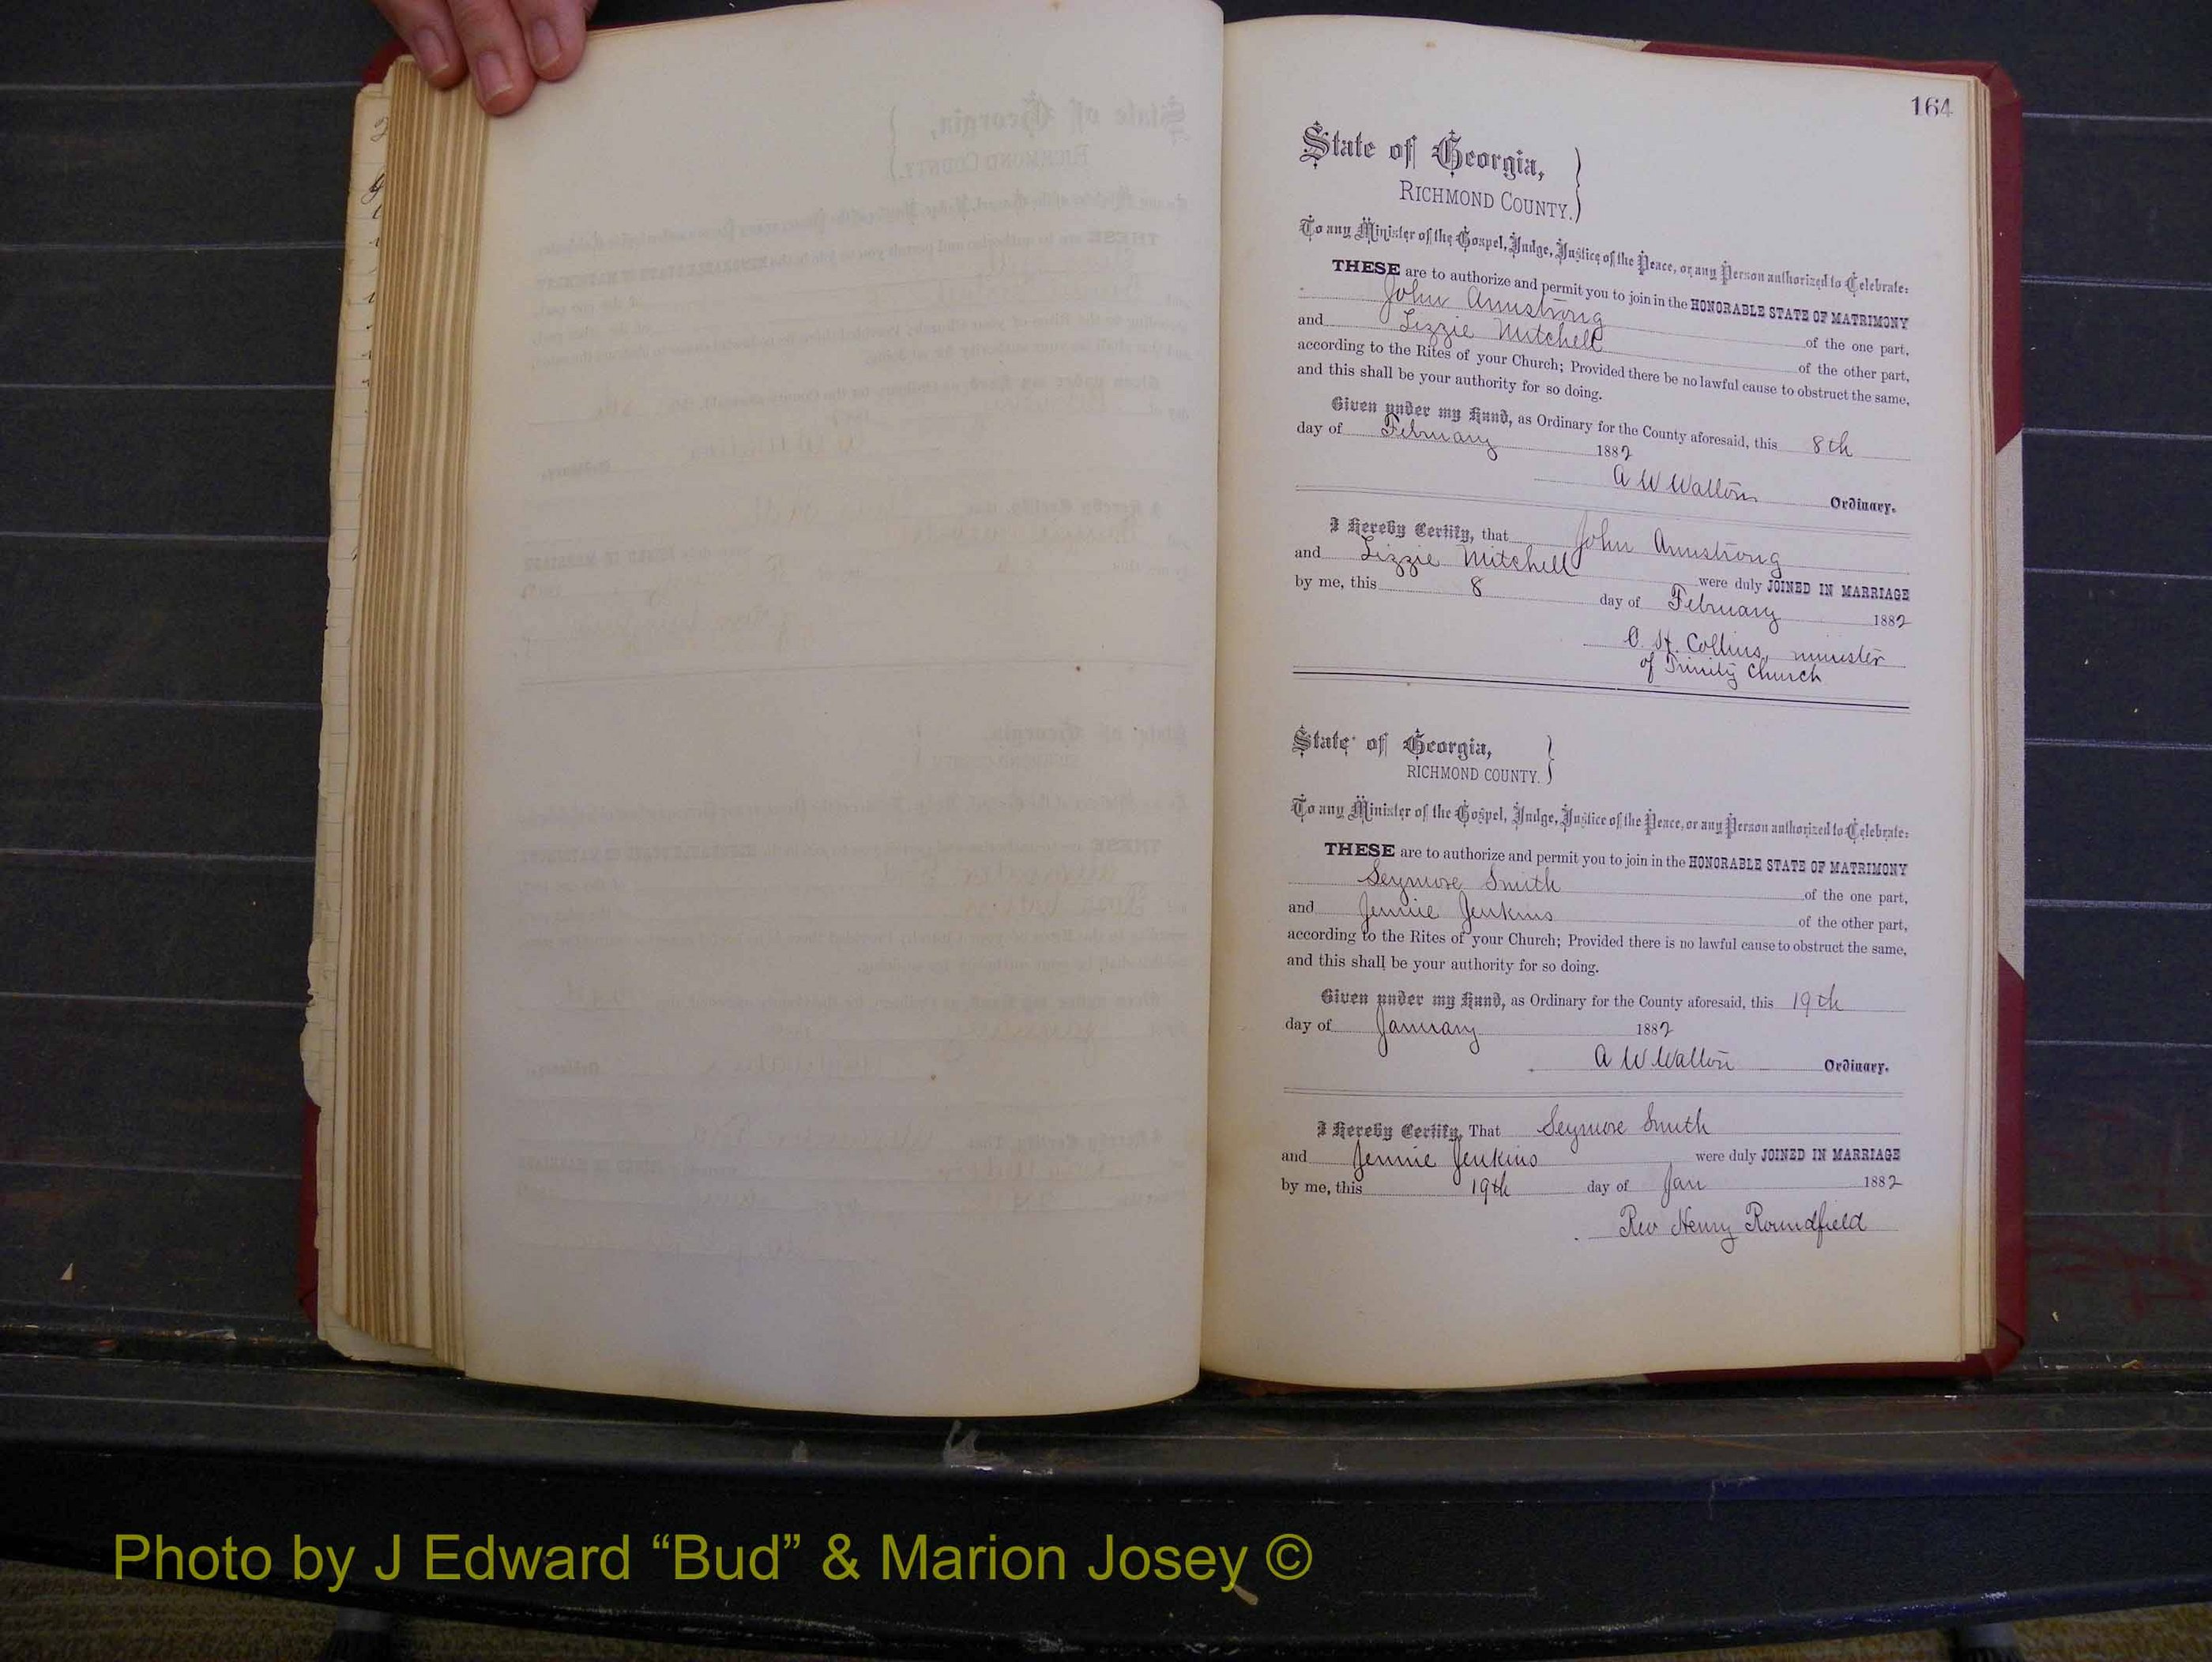 164
State of Georgia,
RICHMOND COUNTY.
To any Minister of the Gospel, Judge, Justice of the Peace, or any Person authorized to Celebrate:
THESE are to authorize and permit you to join in the HONORABLE STATE OF MATRIMONY
John Armstrong of the one part,
and Lizzie Mitchell of the other part,
according to the Rites of your Church; Provided there be no lawful cause to obstruct the same,
and this shall be your authority for so doing.
Given under my Hand, as Ordinary for the County aforesaid, this 8th
day of February 1882
A W Walton Ordinary.
I Hereby Certify, that John Armstrong
and Lizzie Mitchell were duly JOINED IN MARRIAGE
by me, this 8 day of February 1882
O. H. Collins, minister
of Trinity Church
State of Georgia,
RICHMOND COUNTY.
To any Minister of the Gospel, Judge, Justice of the Peace, or any Person authorized to Celebrate:
THESE are to authorize and permit you to join in the HONORABLE STATE OF MATRIMONY
Seymore Smith of the one part,
and Jennie Jenkins of the other part,
according to the Rites of your Church; Provided there is no lawful cause to obstruct the same,
and this shall be your authority for so doing.
Given under my Hand, as Ordinary for the County aforesaid, this 19th
day of January 1882
A W Walton Ordinary.
I Hereby Certify, That Seymore Smith
and Jennie Jenkins were duly JOINED IN MARRIAGE
by me, this 19th day of Jan 1882
Rev Henry Roundfield
Photo by J Edward “Bud” & Marion Josey ©